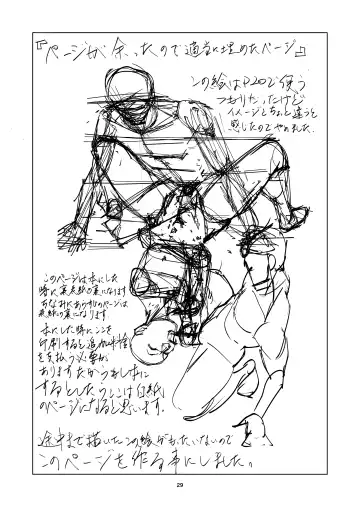 『ページが余ったので適当に埋めたページ』
この絵はP20で使う
つもりだったけど
イメージとちょっと違うと
感じたのでやめました
このページは本にした
時に裏表紙の裏になります
ちなみにあらすじのページは
表紙の裏になります
本にした時にここを
印刷すると追加料金
を支払う必要が
ありますだからもし本に
するとしたらここは白紙
のページになると思います.
途中まで描いたこの絵がもったいないので
このページを作る事にしました。
29